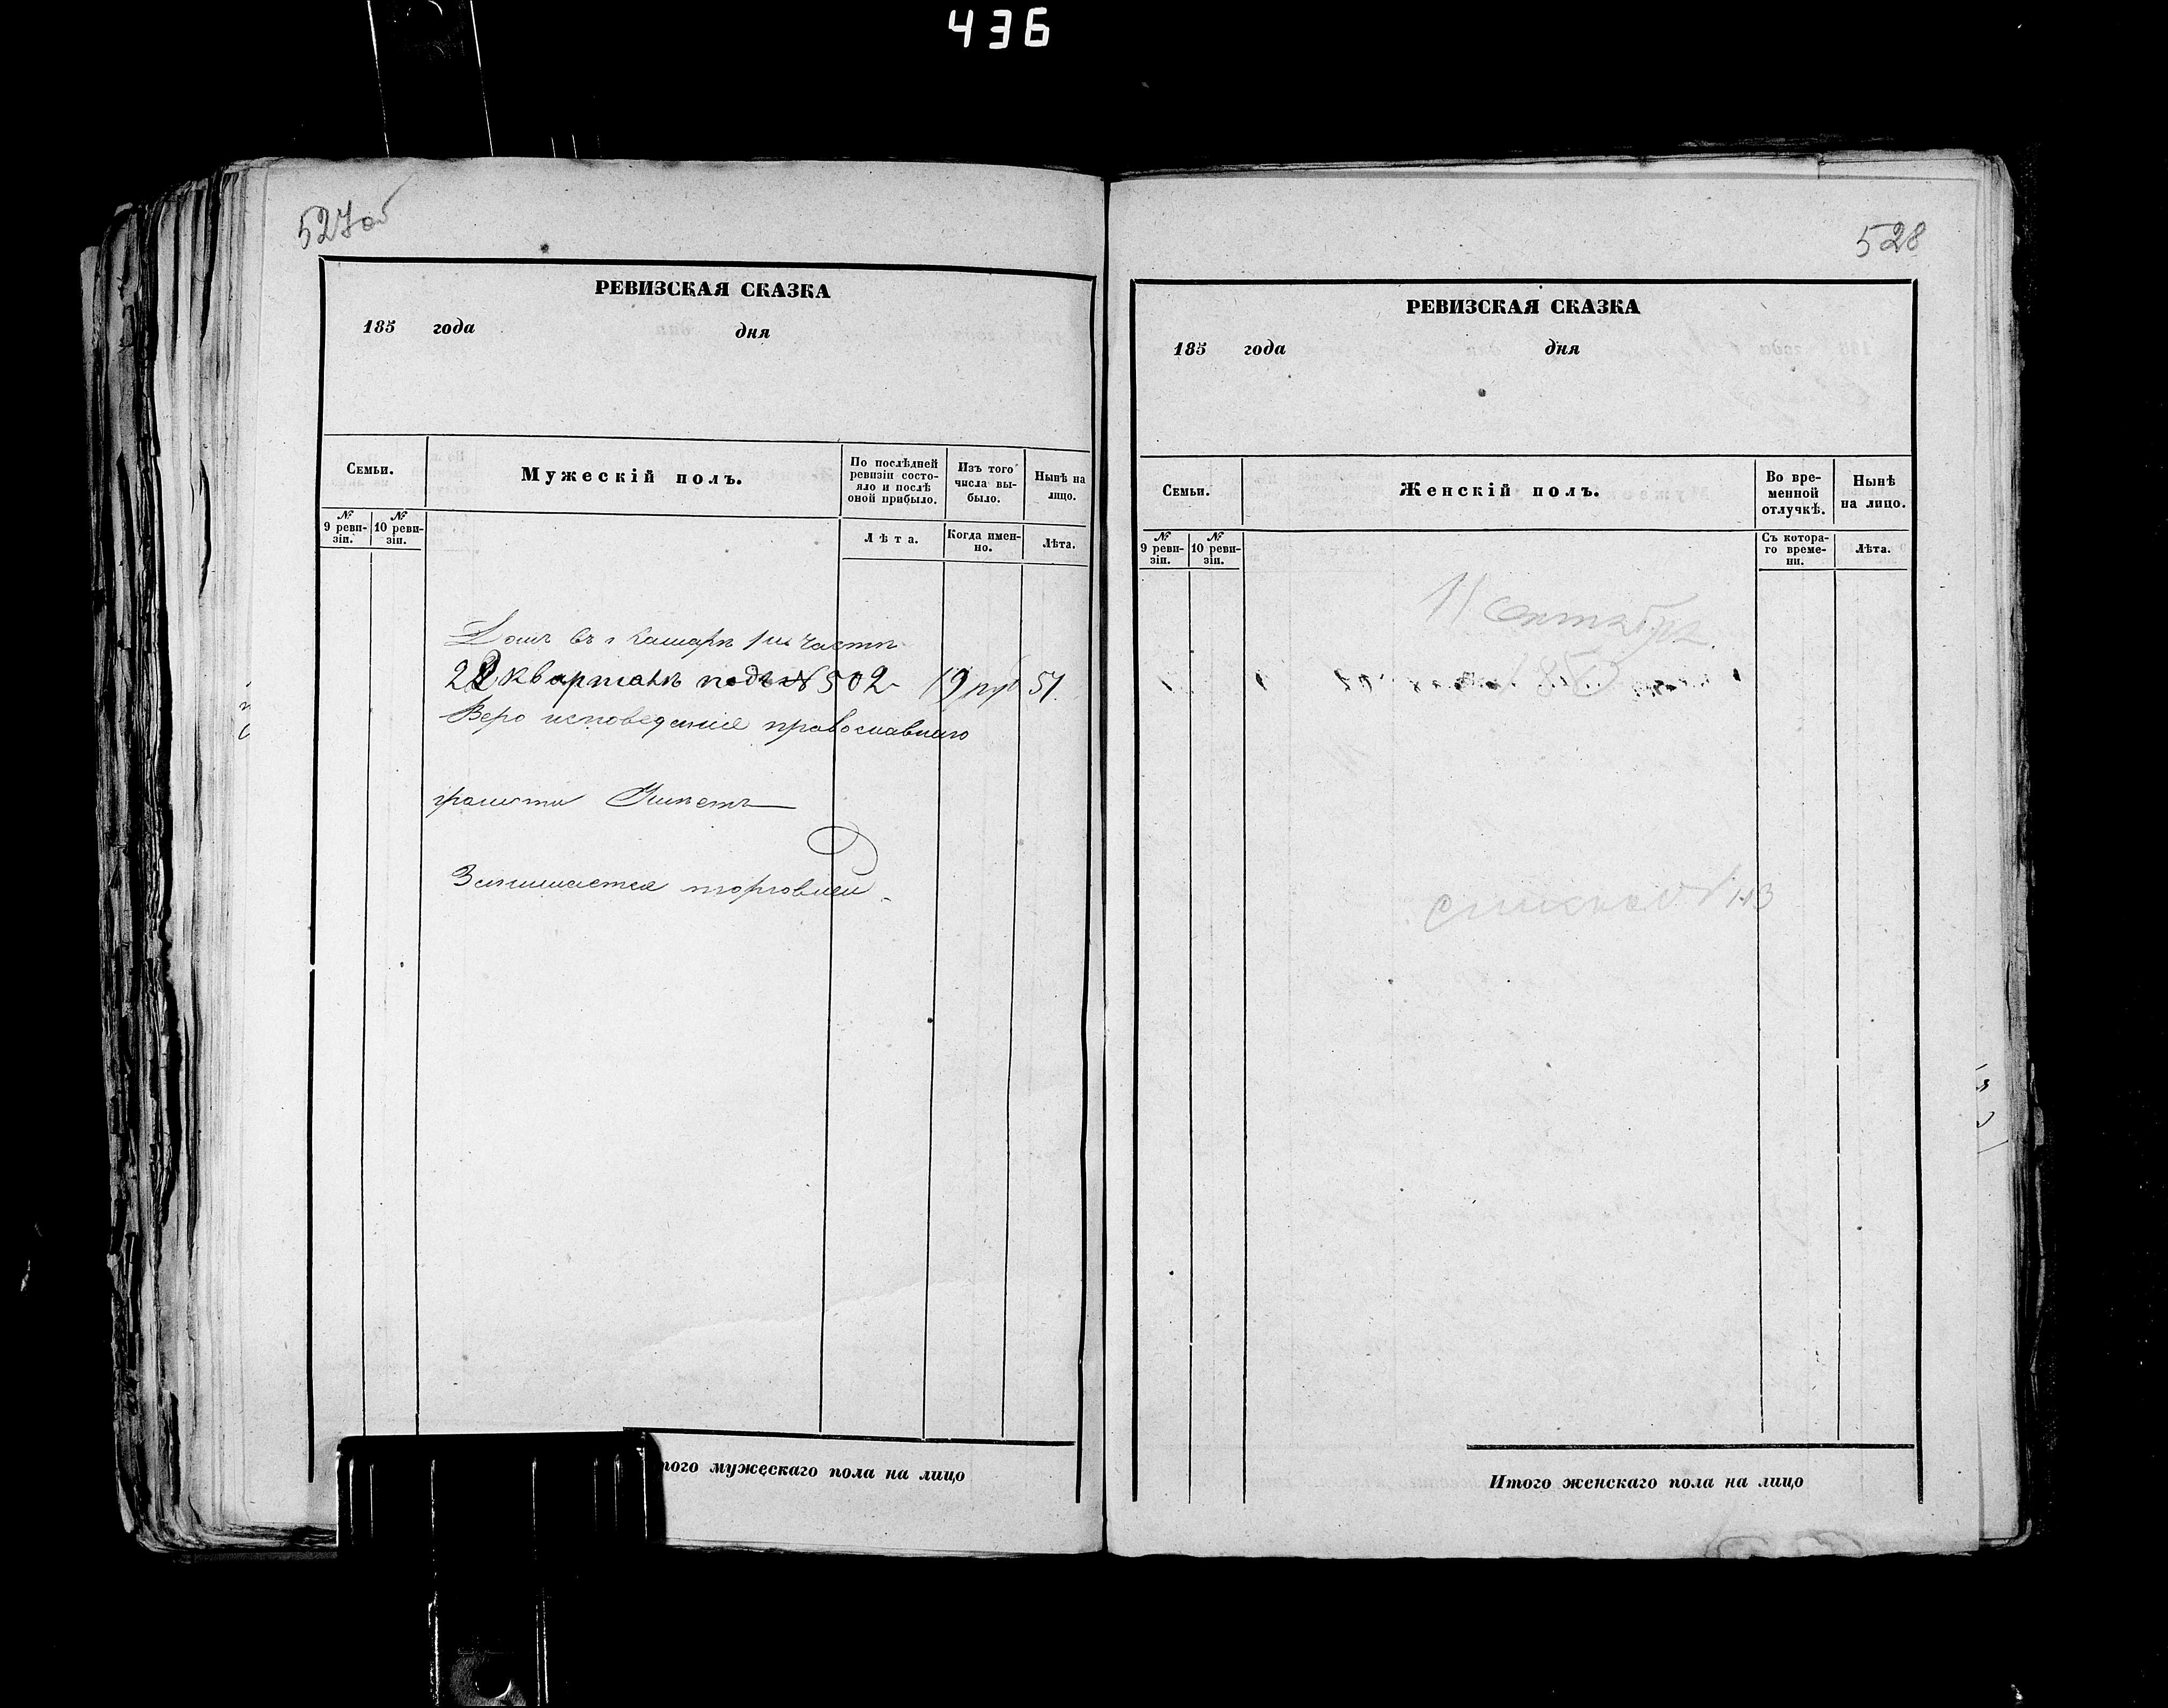 436
527об
РЕВИЗСКАЯ СКАЗКА
185 года дня
Семьи.
Мужескій полъ.
По послѣдней ревизіи состояло и послѣ оной прибыло.
Изъ того числа выбыло.
Нынѣ на лицо.
№ 9 ревизіи.
№ 10 ревизіи.
Лѣта.
Когда именно.
Лѣта.
Домъ въ г Самарѣ 1й части
2 кварталѣ подъ № 502 19 руб 51.
Веро исповедание православнаго
грамоти Умѣетъ
Занимается торговлей.
Итого мужескаго пола на лицо
528
РЕВИЗСКАЯ СКАЗКА
185 года дня
Семьи.
Женскій полъ.
Во временной отлучкѣ.
Нынѣ на лицо.
№ 9 ревизіи.
№ 10 ревизіи.
Съ котораго времени.
Лѣта.
11 сентября
Итого женскаго пола на лицо